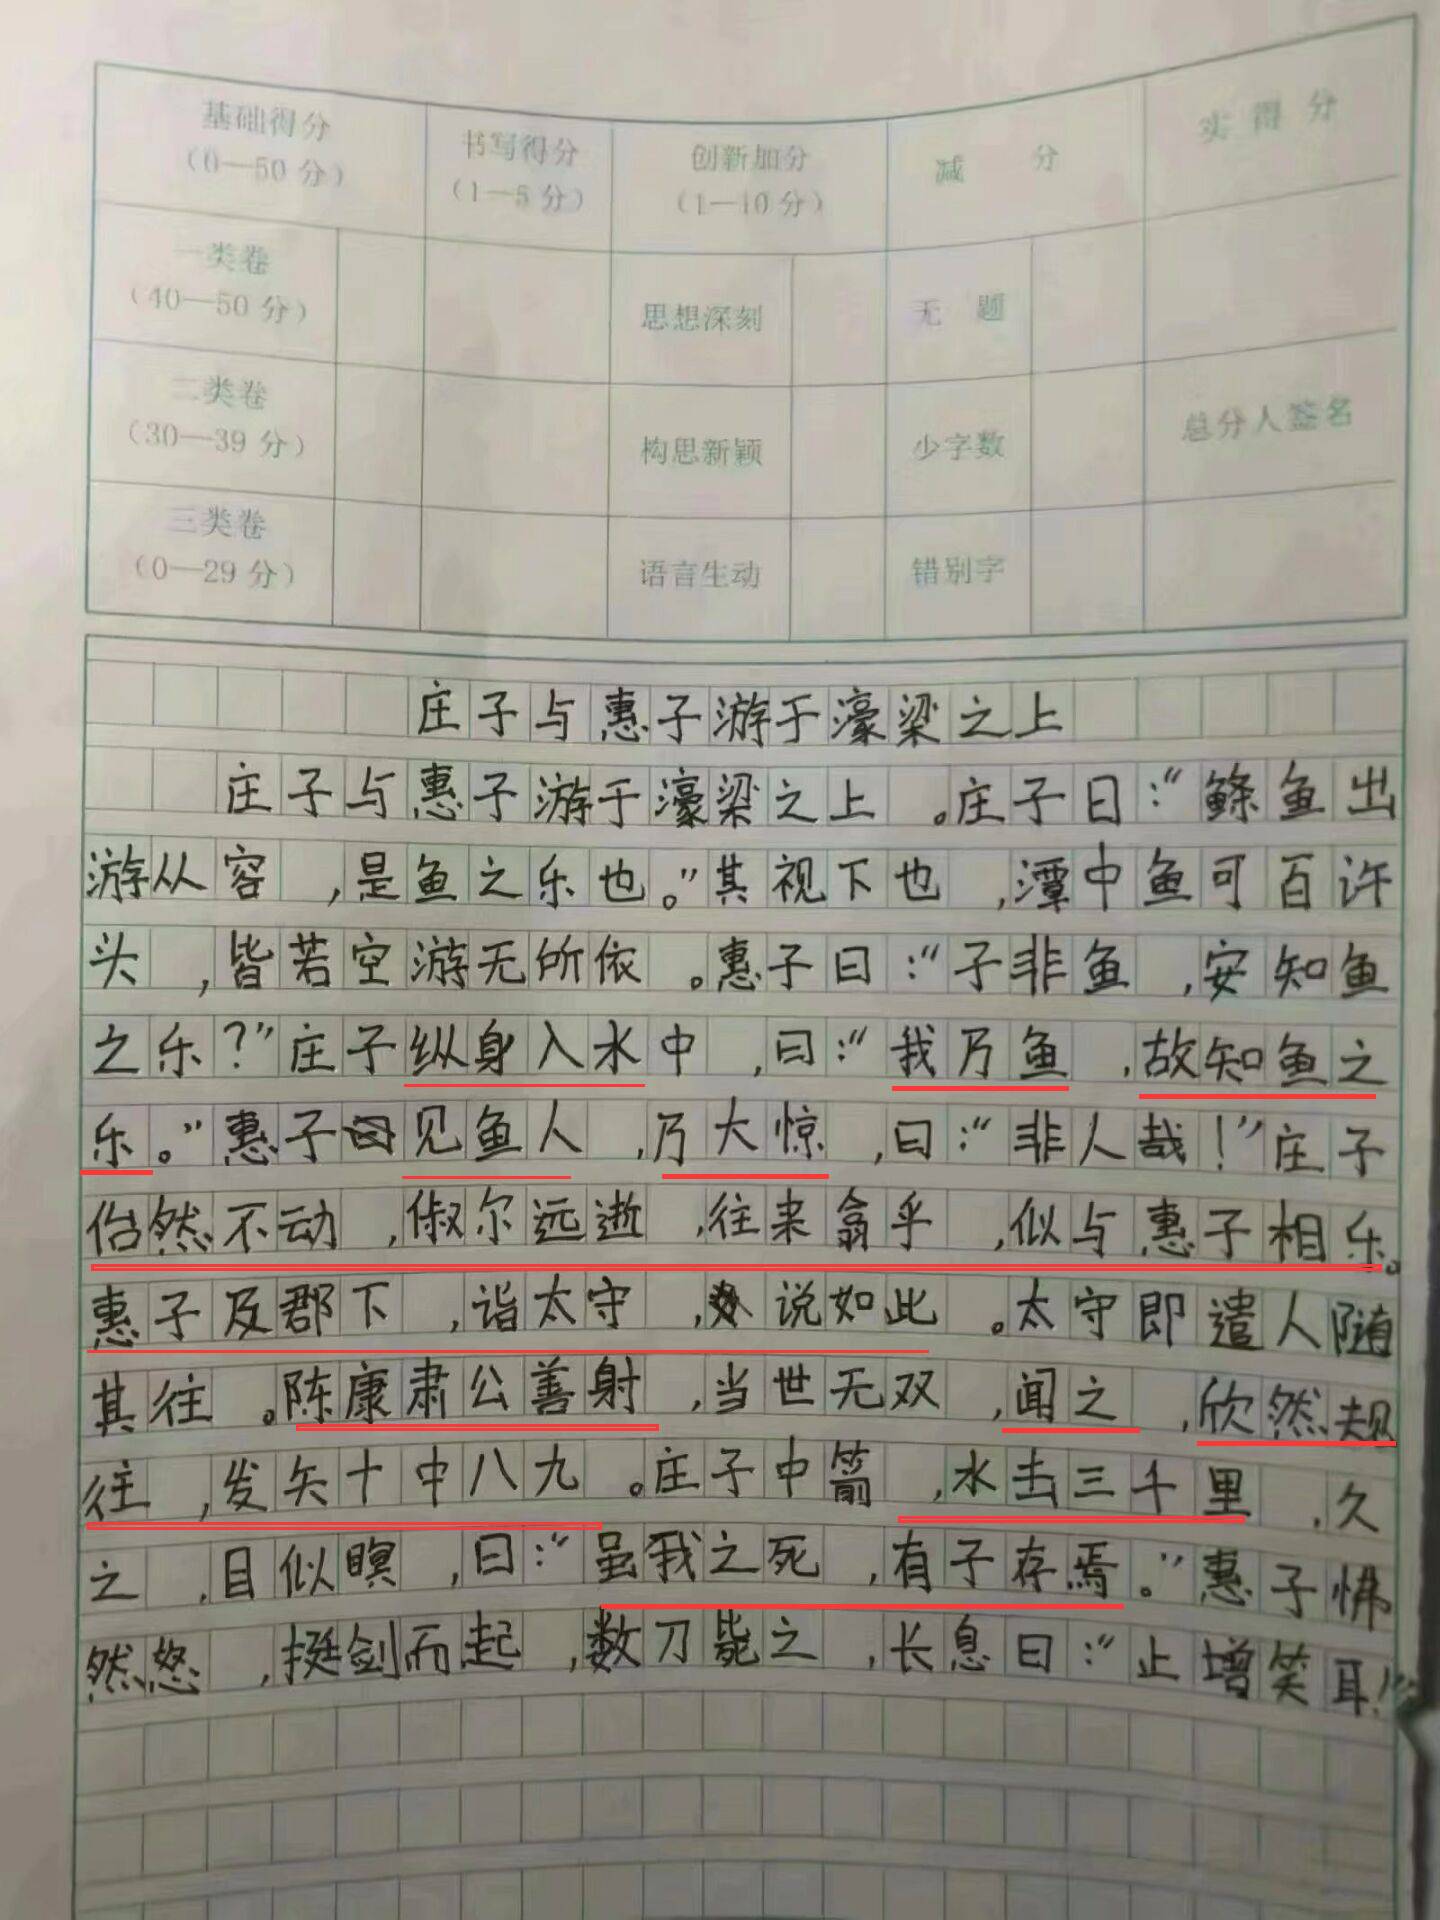 基础得分
(0—50分)
书写得分
(1—5分)
创新加分
(1—10分)
减 分
实得分
一类卷
(40—50分)
思想深刻
无 题
二类卷
(30—39分)
构思新颖
少字数
总分人签名
三类卷
(0—29分)
语言生动
错别字
庄子与惠子游于濠梁之上
庄子与惠子游于濠梁之上。庄子曰:“鲦鱼出
游从容,是鱼之乐也。”其视下也,潭中鱼可百许
头,皆若空游无所依。惠子曰:“子非鱼,安知鱼
之乐?”庄子纵身入水中,曰:“我乃鱼,故知鱼之
乐。”惠子见鱼人,乃大惊,曰:“非人哉!”庄子
佁然不动,俶尔远逝,往来翕乎,似与惠子相乐。
惠子及郡下,诣太守,说如此。太守即遣人随
其往。陈康肃公善射,当世无双,闻之,欣然规
往,发矢十中八九。庄子中箭,水击三千里,久
之,目似瞑,曰:“虽我之死,有子存焉。”惠子怫
然怒,挺剑而起,数刀毙之,长息曰:“止增笑耳!”